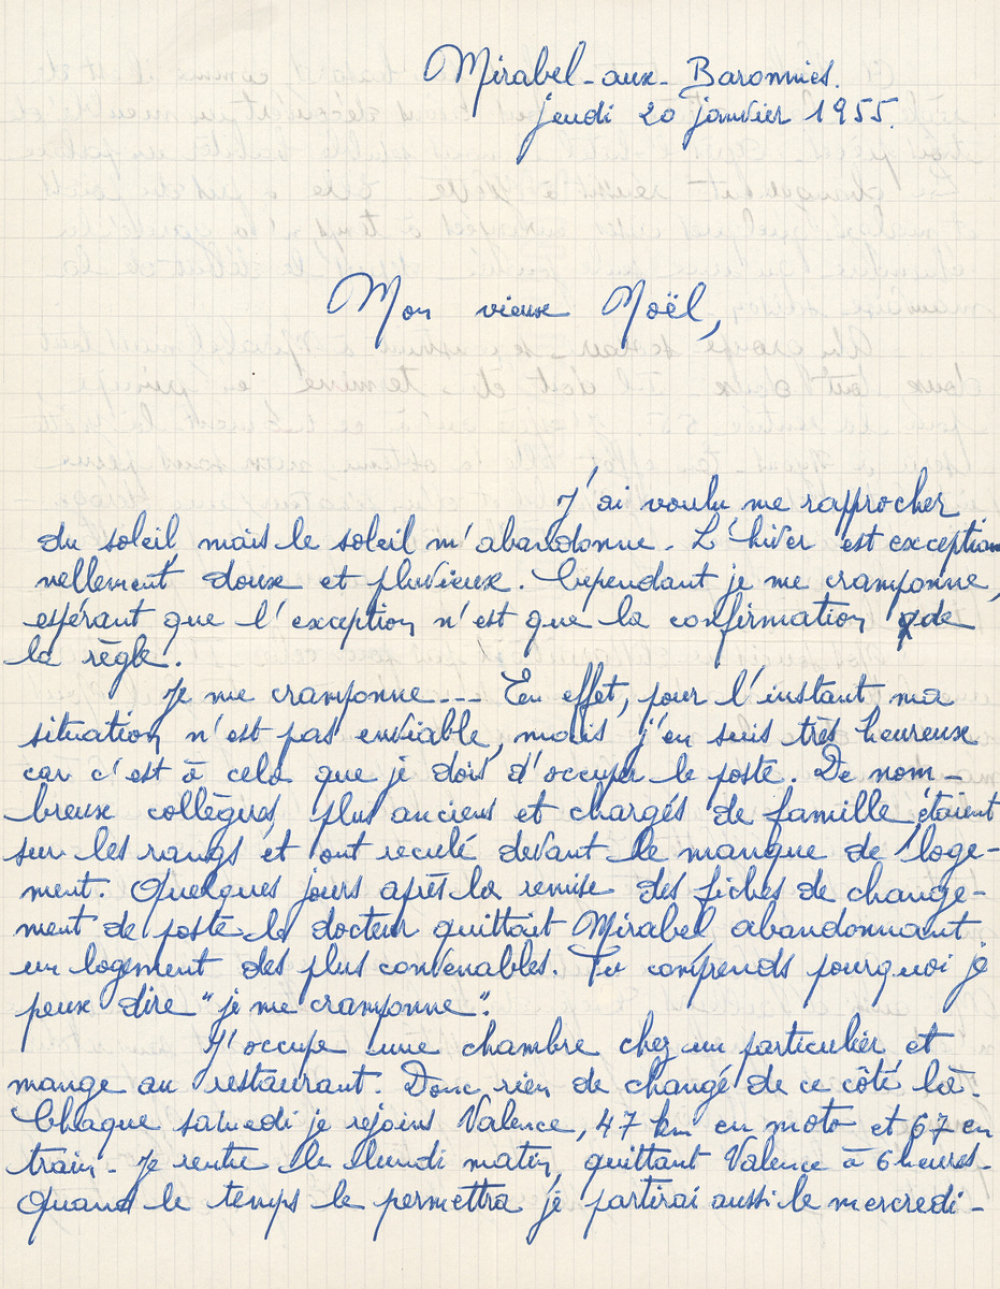 Mirabel-aux-Baronnies.
jeudi 20 janvier 1955.
Mon vieux Noël,
J'ai voulu me rapprocher
du soleil, mais le soleil m'abandonne. L'hiver est exception
nellement doux et pluvieux. Cependant je me cramponne,
espérant que l'exception n'est que la confirmation de
la règle.
Je me cramponne... En effet, pour l'instant ma
situation n'est pas enviable, mais j'en suis très heureux
car c'est à cela que je dois d'occuper le poste. De nom-
breux collègues, plus anciens et chargés de famille, étaient
sur les rangs et ont reculé devant le manque de loge-
ment. Quelques jours après la remise des fiches de change-
ment de poste le docteur quittait Mirabel abandonnant
un logement des plus convenables. Tu comprends pourquoi je
peux dire "je me cramponne".
J'occupe une chambre chez un particulier et
mange au restaurant. Donc rien de changé de ce côté là.
Chaque samedi je rejoins Valence, 47 km en moto et 67 en
train. Je rentre le lundi matin, quittant Valence à 6 heures.
Quand le temps le permettra je partirai aussi le mercredi.